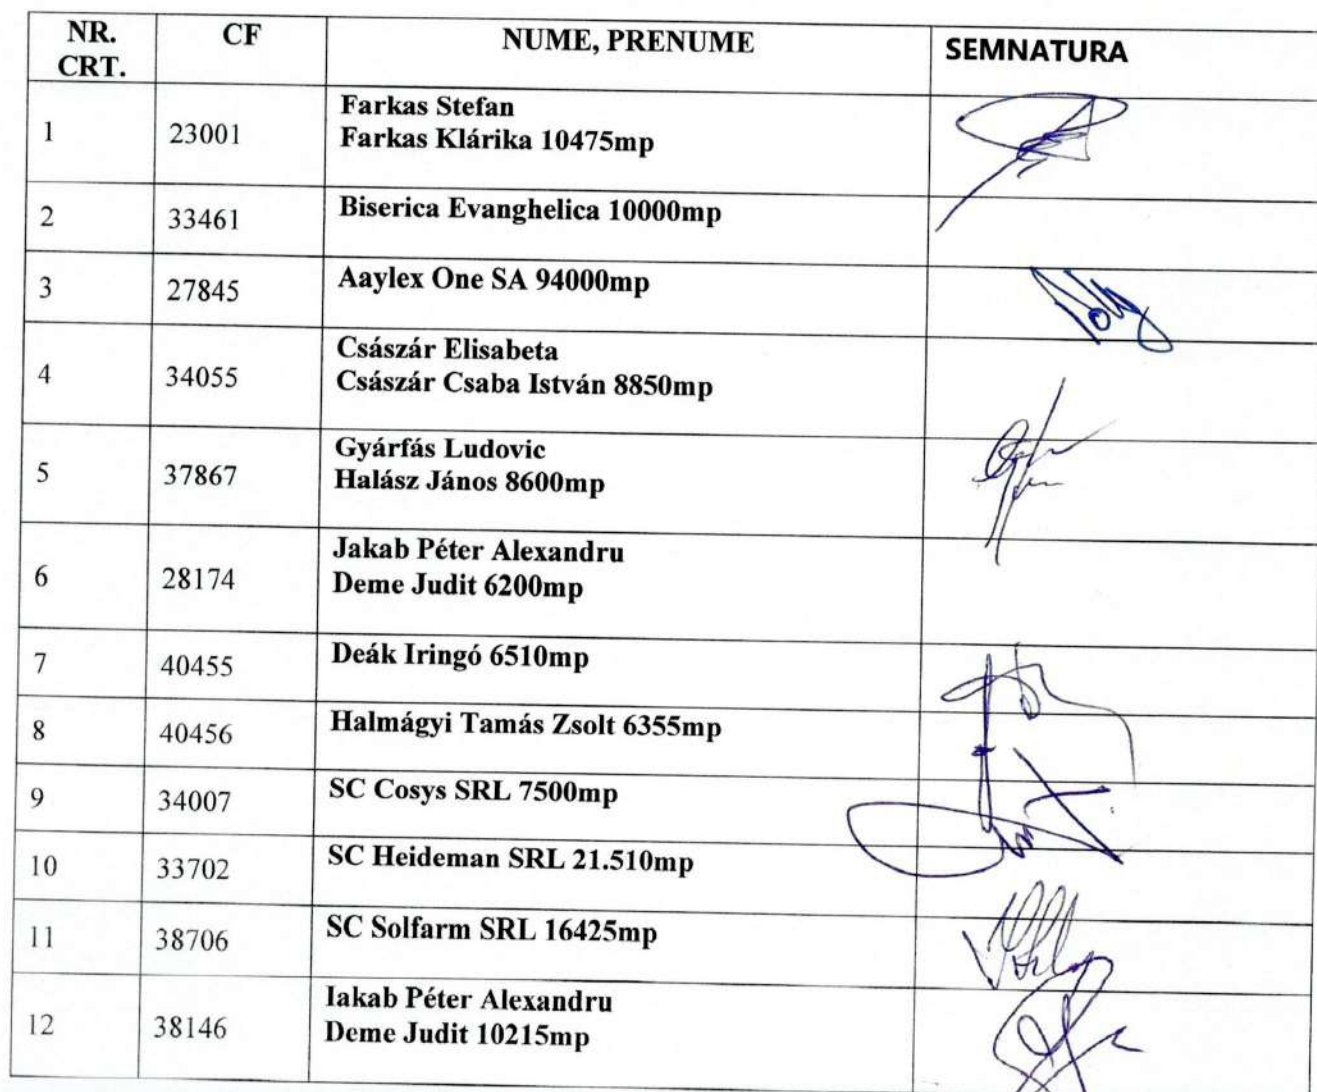 NR. CRT. CF NUME, PRENUME SEMNATURA
1 23001 Farkas Stefan
Farkas Klárika 10475mp
2 33461 Biserica Evanghelica 10000mp
3 27845 Aaylex One SA 94000mp
4 34055 Császár Elisabeta
Császár Csaba István 8850mp
5 37867 Gyárfás Ludovic
Halász János 8600mp
6 28174 Jakab Péter Alexandru
Deme Judit 6200mp
7 40455 Deák Iringó 6510mp
8 40456 Halmágyi Tamás Zsolt 6355mp
9 34007 SC Cosys SRL 7500mp
10 33702 SC Heideman SRL 21.510mp
11 38706 SC Solfarm SRL 16425mp
12 38146 Iakab Péter Alexandru
Deme Judit 10215mp